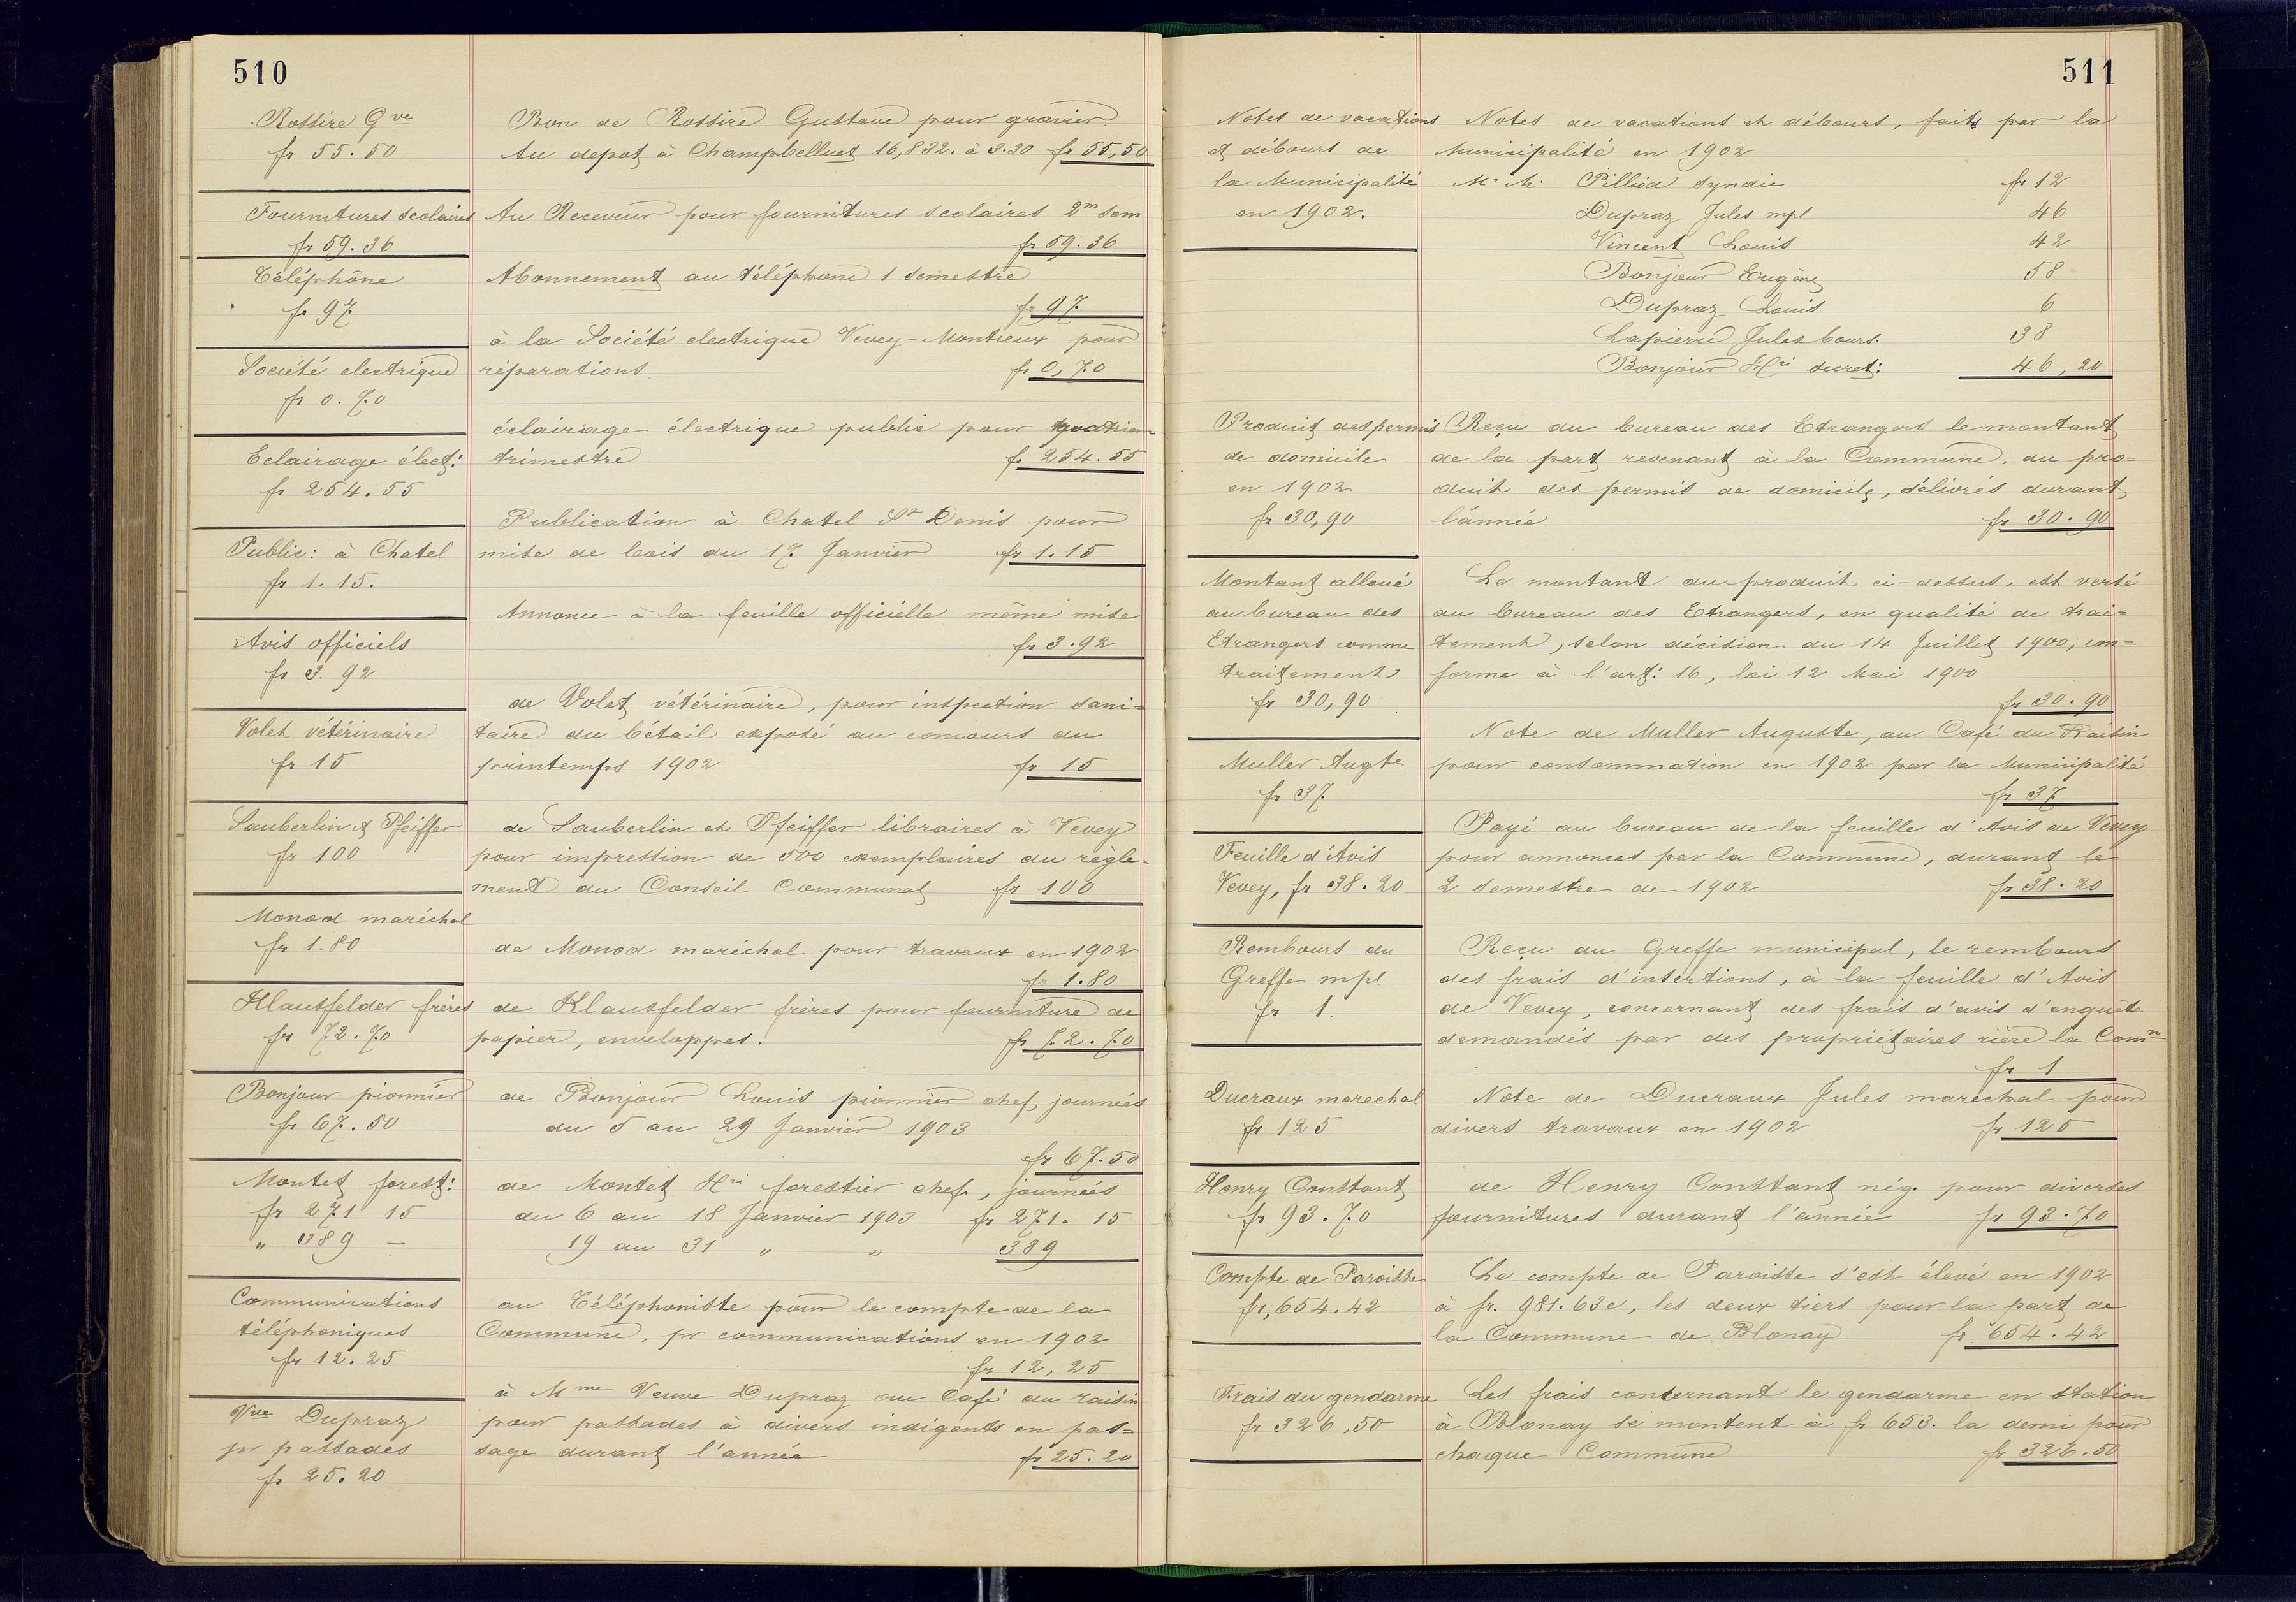 510
Rossire Gve
fr 55.50
Bon de Rossire Gustave pour gravier
Au depot à Champbelluet 16,832. à 3.30 fr 55,50
Fournitures scolaires
fr 59.36
Au Receveur pour fournitures scolaires 2m sem
fr 59.36
Téléphone
fr 97
Abonnement au téléphone 1 semestre
fr 97
Société electrique
fr 0.70
à la Société electrique Vevey-Montreux pour
réparations. fr 0,70
Eclairage élect:
fr 254.55
éclairage électrique public pour
trimestre fr 254.55
Public: à Chatel
fr 1.15.
Publication à Chatel St Denis pour
mise de bois du 17 Janvier fr 1.15
Avis officiels
fr 3.92
Annonce à la feuille officielle même mise
fr 3.92
Volet vétérinaire
fr 15
de Volet vétérinaire, pour inspection sani=
taire du bétail exposé au concours du
printemps 1902 fr 15
Sauberlin et Pfeiffer
fr 100
de Sauberlin et Pfeiffer libraires à Vevey
pour impression de 500 exemplaires du règle-
ment du Conseil Communal fr 100
Monod maréchal
fr 1.80
de Monod maréchal pour travaux en 1902
fr 1.80
Klausfelder frères
fr 72.70
de Klausfelder frères pour fourniture de
papier, enveloppes. fr 72.70
Bonjour pionnier
fr 67.50
de Bonjour Louis pionnier chef, journées
du 5 au 29 Janvier 1903
fr 67.50
Montet forest:
fr 271 15
" 389 —
de Montet Hri forestier chef, journées
du 6 au 18 Janvier 1903 fr 271.15
19 au 31 " " 389
Communications
téléphoniques
fr 12.25
au Téléphoniste pour le compte de la
Commune, pr communications en 1902
fr 12,25
Vve Dupraz
pr passades
fr 25.20
à Mme Veuve Dupraz au Café du raisin
pour passades à divers indigents en pas=
sage durant l'année fr 25.20
511
Notes de vacations
et débours de
la Municipalité
en 1902.
Notes de vacations et débours, faits par la
Municipalité en 1902
M. M. Pilliod syndic fr 12
Dupraz Jules mpl 46
Vincent Louis 42
Bonjour Eugène 58
Dupraz Louis 6
Lapierre Jules bours. 38
Bonjour Hri secret: 46,20
Produit des permis
de domicile
en 1902
fr 30,90
Reçu du bureau des Etrangers le montant
de la part revenant à la Commune, du pro=
duit des permis de domicile, délivrés durant
l'année fr 30.90
Montant alloué
au bureau des
Etrangers comme
traitement
fr 30,90
Le montant du produit ci-dessus, est versé
au bureau des Etrangers, en qualité de trai=
tement, selon décision du 14 Juillet 1900, con=
forme à l'art: 16, loi 12 Mai 1900
fr 30.90
Muller Augte
fr 37
Note de Muller Auguste, au Café du Raisin
pour consommation en 1902 par la Municipalité
fr 37
Feuille d'Avis
Vevey, fr 38.20
Payé au bureau de la feuille d'Avis de Vevey
pour annonces par la Commune, durant le
2 semestre de 1902 fr 38.20
Rembours du
Greffe mpl
fr 1.
Reçu du Greffe municipal, le rembours
des frais d'insertions, à la feuille d'Avis
de Vevey, concernant des frais d'avis d'enquête
demandés par des propriétaires rière la Comne
fr 1
Ducraux marechal
fr 125
Note de Ducraux Jules maréchal pour
divers travaux en 1902 fr 125
Henry Constant
fr 93.70
de Henry Constant nég. pour diverses
fournitures durant l'année fr 93.70
Compte de Paroisse
fr, 654.42
Le compte de Paroisse s'est élevé en 1902
à fr. 981.63c, les deux tiers pour la part de
la Commune de Blonay fr. 654.42
Frais du gendarme
fr 326,50
Les frais concernant le gendarme en station
à Blonay se montent à fr 653. la demi pour
chaque Commune fr 326.50